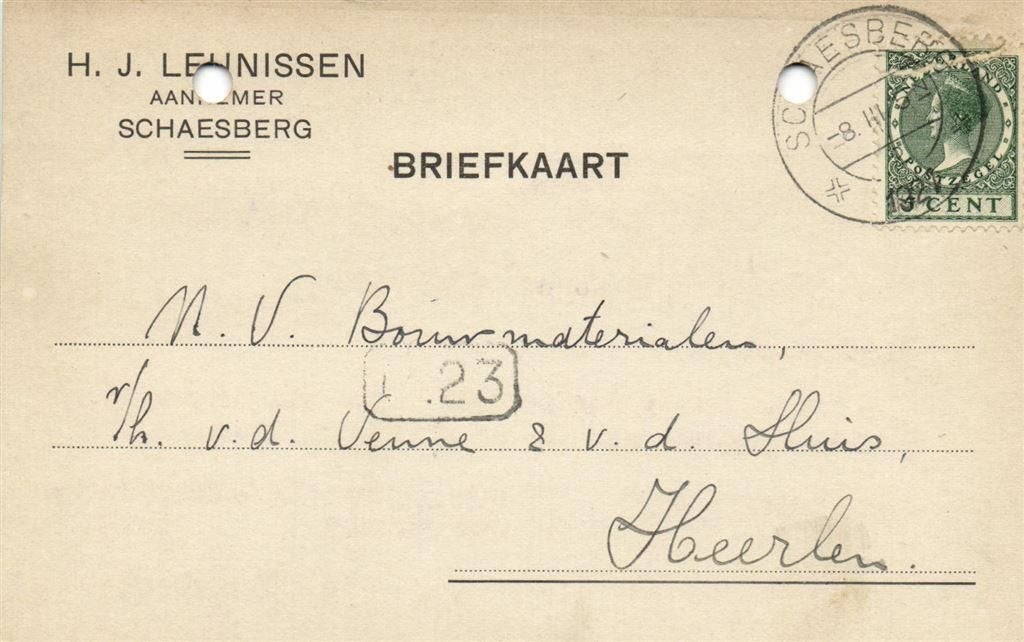 H. J. LEUNISSEN
AANNEMER
SCHAESBERG
BRIEFKAART
SCHAESBERG
-8. III
POSTZEGEL
5 CENT
N. V. Bouwmaterialen,
.23
v/h. v.d. Venne & v. d. Sluis,
Heerlen.